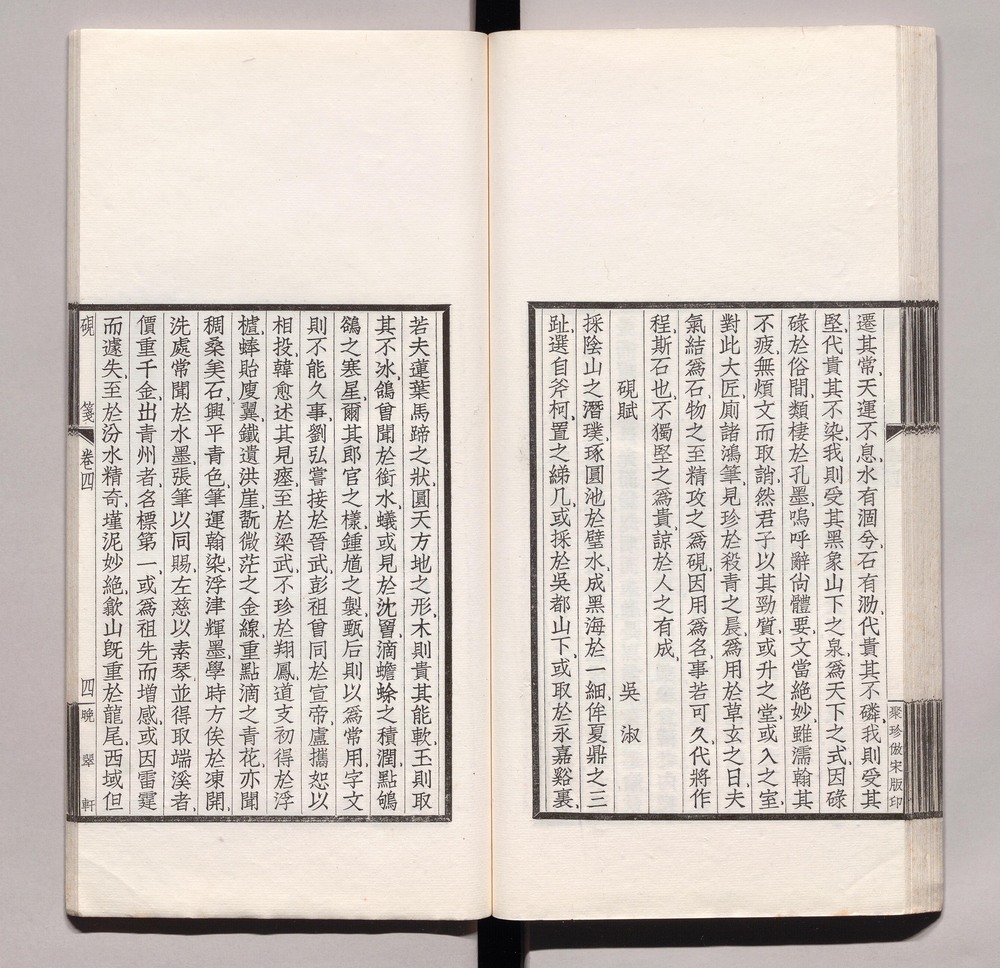 遷其常天運不息水有涸兮石有泐代貴其不磷我則受其
堅代貴其不染我則受其黑象山下之泉爲天下之式因碌
碌於俗間類棲棲於孔墨嗚呼辭尙體要文當絶妙雖濡翰其
不疲無煩文而取誚然君子以其勁質或升之堂或入之室
對此大匠廁諸鴻筆見珍於殺青之晨爲用於草玄之日夫
氣結爲石物之至精攻之爲硯因用爲名事若可久代將作
程斯石也不獨堅之爲貴諒於人之有成
硯賦 吳淑
採陰山之潛璞琢圓池於璧水成黑海於一細侔夏鼎之三
趾選自斧柯置之綈几或採於吳都山下或取於永嘉谿裏
聚珍倣宋版印
若夫蓮葉馬蹄之狀圓天方地之形木則貴其能軟玉則取
其不冰鴿曾聞於銜水蟻或見於沈竇滴蟾蜍之積潤點鴝
鵒之寒星爾其郎官之樣鍾馗之製甄后則以爲常用字文
則不能久事劉弘嘗接於晉武彭祖曾同於宣帝盧攜恕以
相投韓愈述其見瘞至於梁武不珍於翔鳳道支初得於浮
櫨蜯貽廋翼鐵遺洪崖翫微茫之金線重點滴之青花亦聞
稠桑美石興平青色筆運翰染浮津輝墨學時方俟於凍開
洗處常聞於水墨張筆以同賜左慈以素琴並得取端溪者
價重千金出青州者名標第一或爲祖先而增感或因雷霆
而遽失至於汾水精奇墐泥妙絶歙山旣重於龍尾西域但
硯箋 卷四 四 晚翠軒